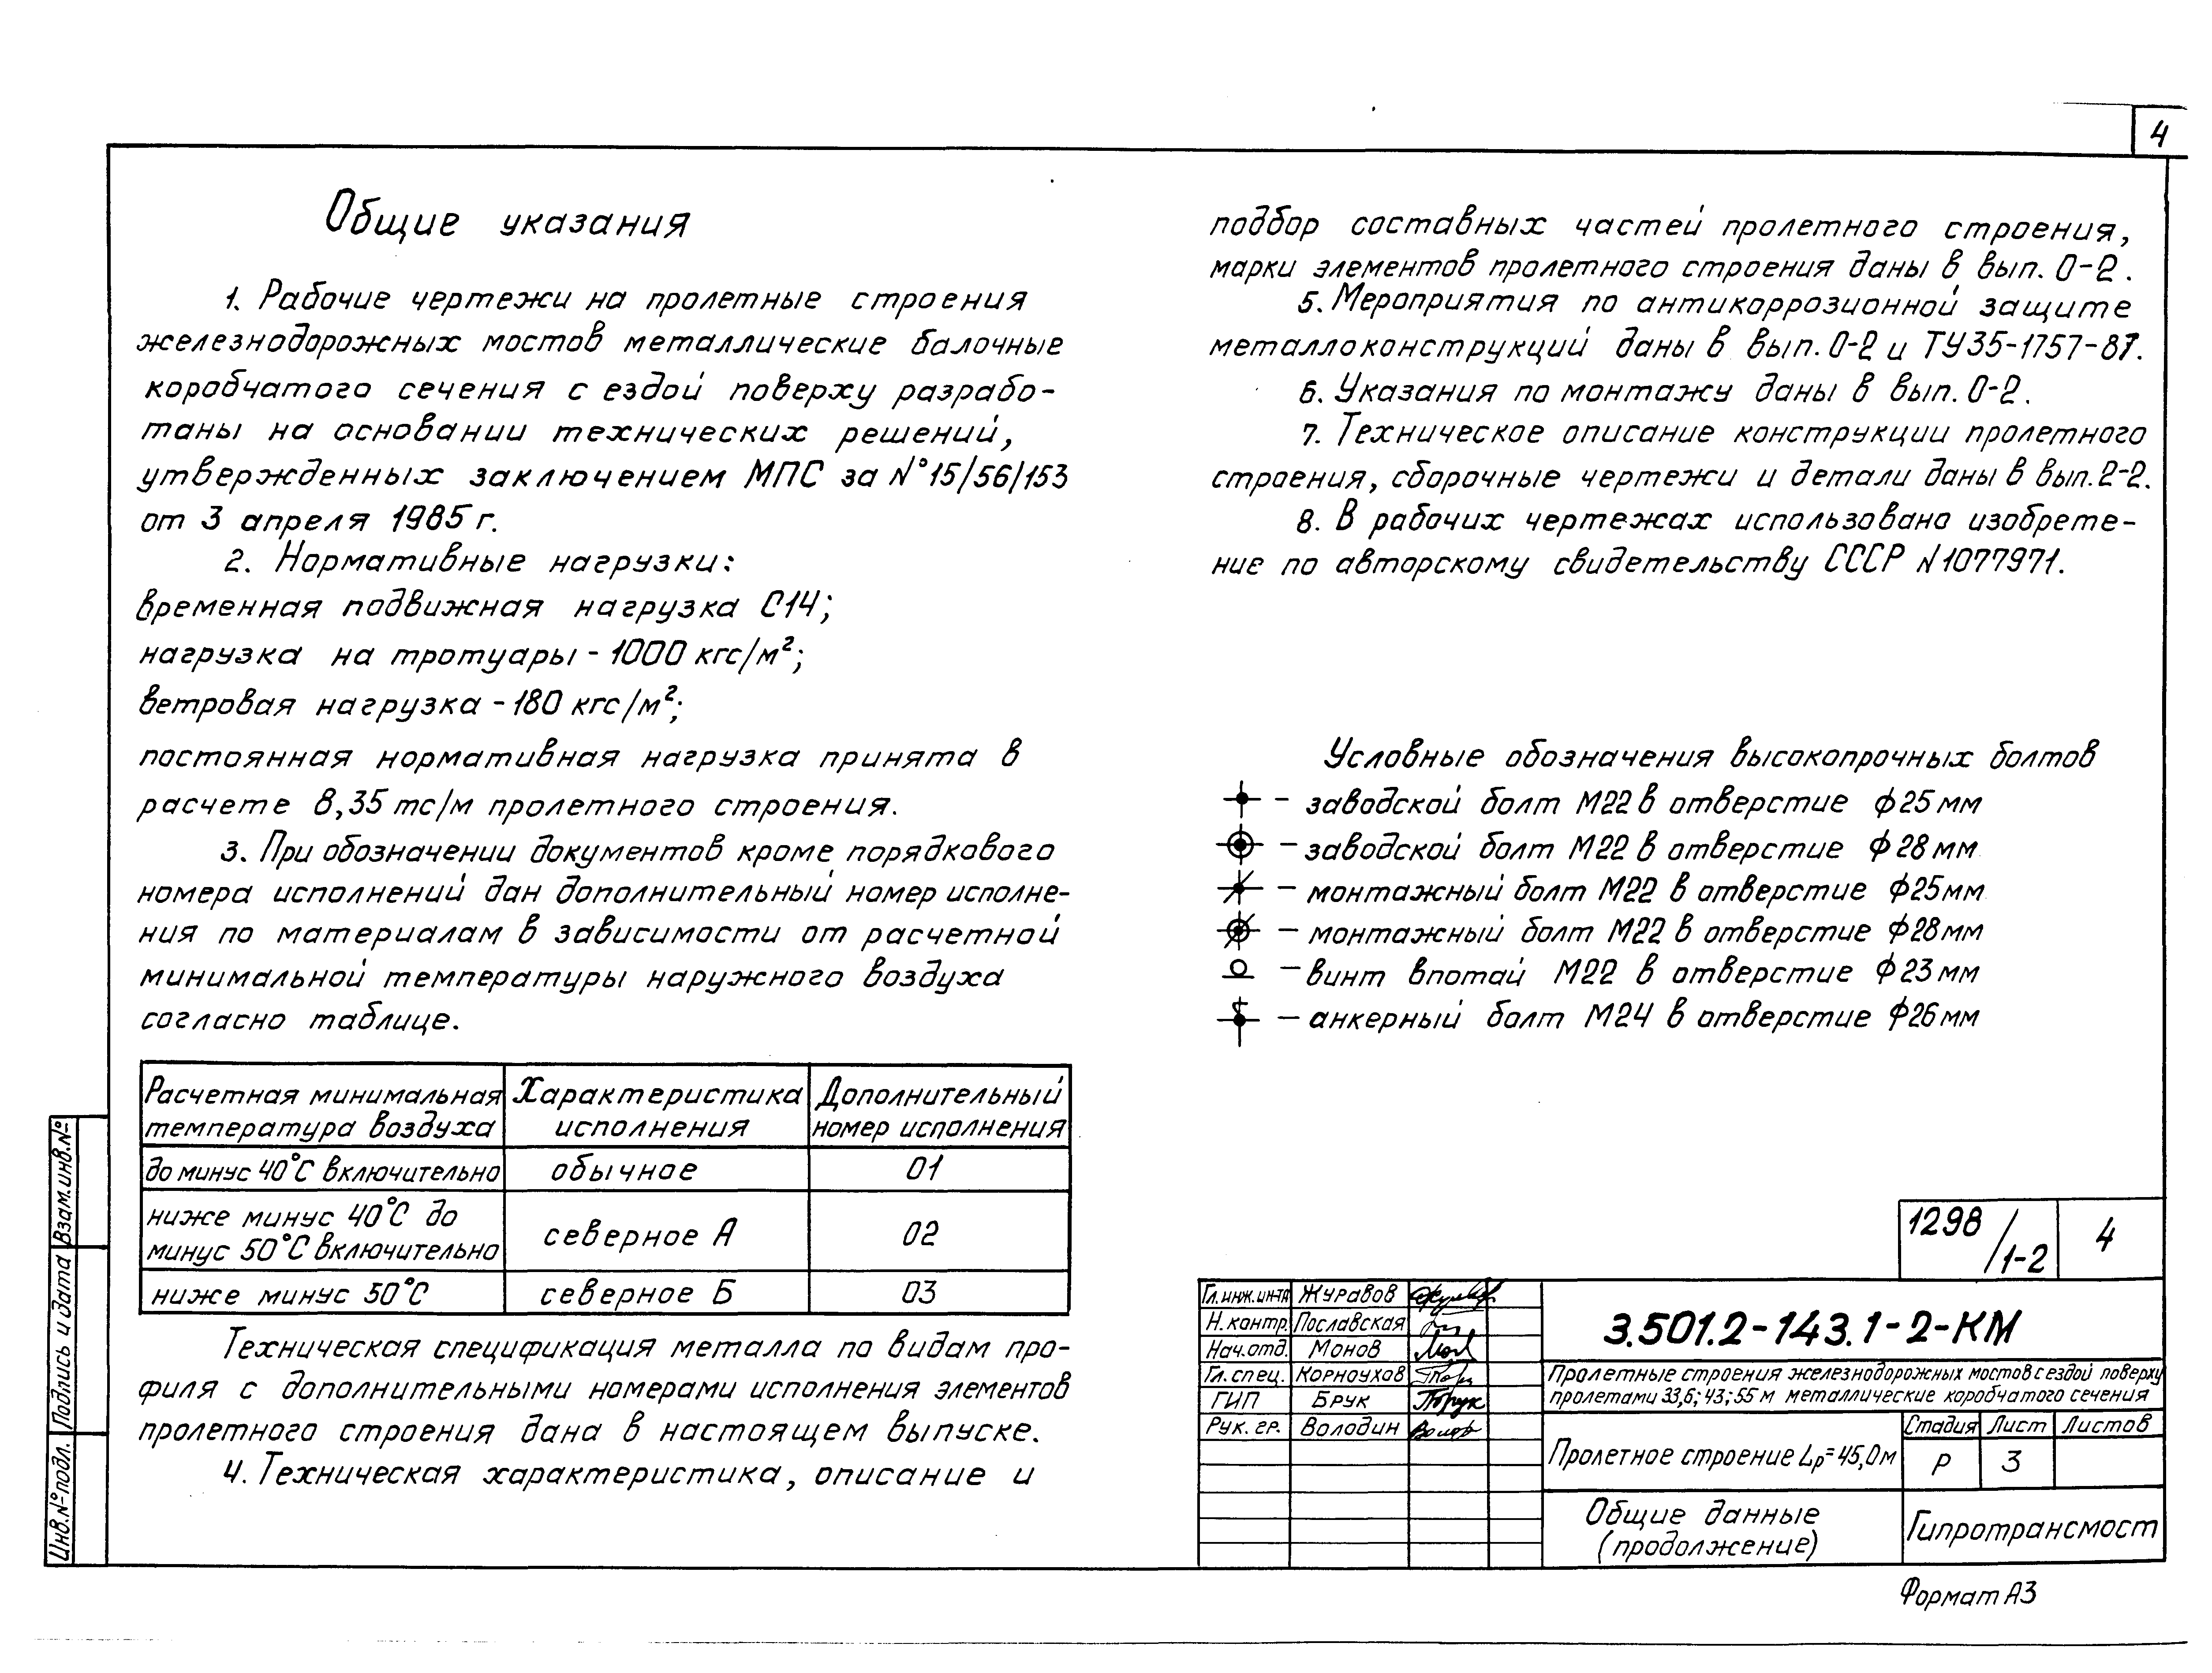 4
Общие указания
1. Рабочие чертежи на пролетные строения
железнодорожных мостов металлические балочные
коробчатого сечения с ездой поверху разрабо-
таны на основании технических решений,
утвержденных заключением МПС за №15/56/153
от 3 апреля 1985 г.
2. Нормативные нагрузки:
временная подвижная нагрузка С14;
нагрузка на тротуары - 1000 кгс/м²;
ветровая нагрузка - 180 кгс/м²;
постоянная нормативная нагрузка принята в
расчете 8,35 тс/м пролетного строения.
3. При обозначении документов кроме порядкового
номера исполнений дан дополнительный номер исполне-
ния по материалам в зависимости от расчетной
минимальной температуры наружного воздуха
согласно таблице.
Расчетная минимальная температура воздуха
Характеристика исполнения
Дополнительный номер исполнения
до минус 40°С включительно обычное 01
ниже минус 40°С до
минус 50°С включительно северное А 02
ниже минус 50°С северное Б 03
Техническая спецификация металла по видам про-
филя с дополнительными номерами исполнения элементов
пролетного строения дана в настоящем выпуске.
4. Техническая характеристика, описание и
подбор составных частей пролетного строения,
марки элементов пролетного строения даны в вып. 0-2.
5. Мероприятия по антикоррозионной защите
металлоконструкций даны в вып. 0-2 и ТУ35-1757-87.
6. Указания по монтажу даны в вып. 0-2.
7. Техническое описание конструкции пролетного
строения, сборочные чертежи и детали даны в вып. 2-2.
8. В рабочих чертежах использовано изобрете-
ние по авторскому свидетельству СССР N1077971.
Условные обозначения высокопрочных болтов
- заводской болт М22 в отверстие ф 25 мм
- заводской болт М22 в отверстие ф 28 мм
- монтажный болт М22 в отверстие ф 25 мм
- монтажный болт М22 в отверстие ф 28 мм
- винт впотай М22 в отверстие ф 23 мм
- анкерный болт М24 в отверстие ф 26 мм
1298/1-2 4
Гл. инж. ин-та Журавов
Н. контр. Пославская
Нач. отд. Монов
Гл. спец. Корноухов
ГИП Брук
Рук. гр. Володин
3.501.2-143.1-2-КМ
Пролетные строения железнодорожных мостов с ездой поверху
пролетами 33,6; 43; 55 м металлические коробчатого сечения
Пролетное строение Lp = 45,0 м
Стадия Лист Листов
Р 3
Общие данные
(продолжение)
Гипротрансмост
Формат А3
Взам. инв. №
Подпись и дата
Инв. № подл.